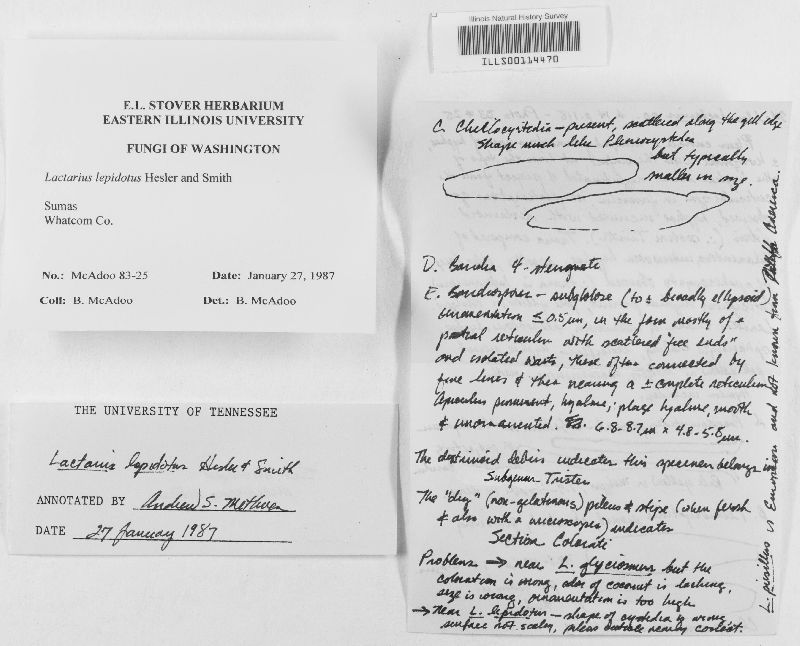 Illinois Natural History Survey
ILLS00114470
E.L. STOVER HERBARIUM
EASTERN ILLINOIS UNIVERSITY
FUNGI OF WASHINGTON
Lactarius lepidotus Hesler and Smith
Sumas
Whatcom Co.
No.: McAdoo 83-25 Date: January 27, 1987
Coll: B. McAdoo Det.: B. McAdoo
THE UNIVERSITY OF TENNESSEE
Lactarius lepidotus Hesler & Smith
ANNOTATED BY Andrew S. Methven
DATE 27 January 1987
C. Cheilocystidia - present, scattered along the gill edge
shape much like Pleurocystidia
but typically
smaller in size.
D. Basidia 4-sterigmate
E. Basidiospores - subglobose (to ± broadly ellipsoid)
ornamentation ≤ 0.5 µm, in the form mostly of a
partial reticulum with scattered "free ends"
and isolated warts, these often connected by
fine lines & then nearing a ± complete reticulum
Apiculus prominent, hyaline; plage hyaline, smooth
& unornamented. 6.8-8.7 µm x 4.8-5.8 µm.
The debris indicates this specimen belongs in
Subgenus Tristes
The "dry" (non-gelatinous) pileus & stipe (when fresh
& also with a microscope) indicates
Section Colorati
Problem → near L. glyciosmus but the
coloration is wrong, odor of coconut is lacking,
size is wrong, ornamentation is too high
→ near L. lepidotus - shape of cystidia is wrong
surface not scaly, pileus cuticle nearly
is European and not known from America.